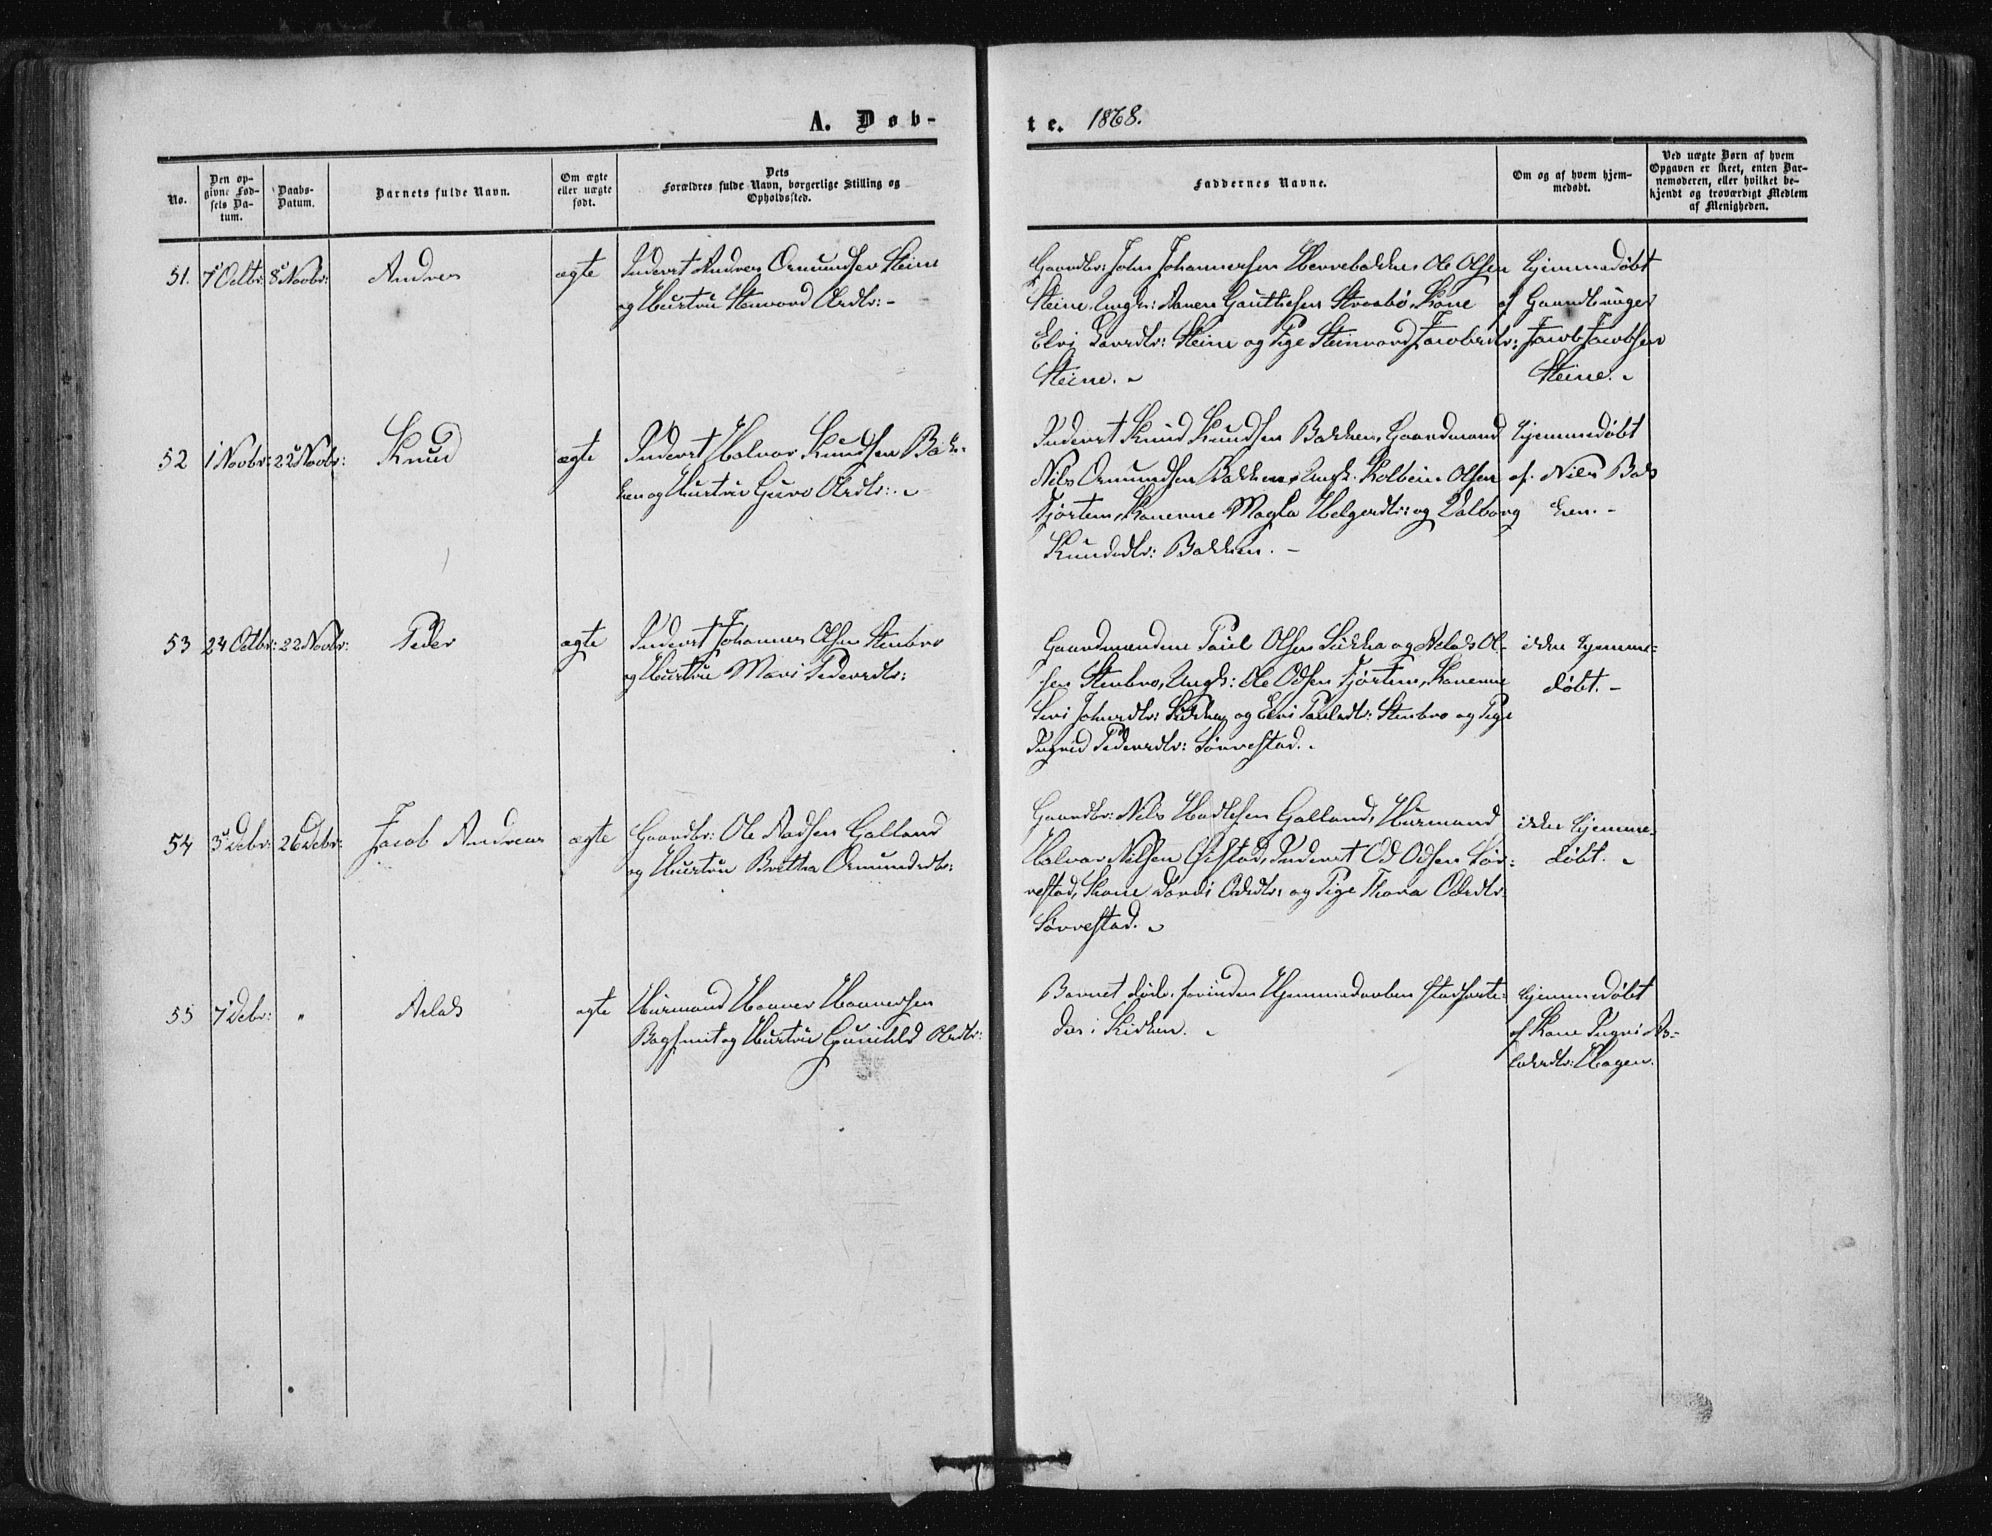 A. Døb-
te. 1868.
No.
Den op-
givne Fød-
sels Da-
tum.
Daabs-
Datum.
Barnets fulde Navn.
Om ægte
eller uægte
født.
Dets
Forældres fulde Navn, borgerlige Stilling og
Opholdssted.
Faddernes Navne.
Om og af hvem hjem-
medøbt.
Ved uægte Børn af hvem
Opgaven er skeet, enten Bar-
nemoderen, eller hvilket be-
kjendt og troværdigt Medlem
af Menigheden.
51. 7 Octbr: 8 Novbr: Andres ægte Inderst Andres Ormundsen Steine
og Hustru Steinvord Olsdtr: -
Gaardbr: John Johannesen Herrebakken Ole Olsen
Steine, Ungk: Gauthesen Kone
Elvi Steine og Pige Steinvord Jacobsdtr:
Steine.
hjemmedøbt
af Gaardbruger
Jacob Jacobsen
Steine.
52 1 Novbr: 22 Novbr: Knud ægte Inderst Halvor Knudsen Bak-
ken og Hustru Guro Olsdtr:
Inderst Knud Knudsen Bakken, Gaardmand
Nils Ormundsen Bakken, Ungk: Kolbein Olsen
Fjørtem, Konerne Magla Helgesdtr: og Valborg
Knudsdtr: Bakken. -
hjemmedøbt
af Nils Bak
ken. -
53 24 Octbr: 22 Novbr: Peder ægte Inderst Johannes Olsen Stenbro
og Hustru Mari Pedersdtr:
Gaardmændene Paul Olsen og Aslak Ol-
sen Stenbro, Ungk: Ole Odsen Fjørtem, Konerne
Siri Johnsdtr: og Elvi Paulsdtr: Stenbro og Pige
Ingrid Pedersdtr: Sørrestad.
ikke hjemme-
døbt. -
54 3 Debr: 26 Debr: Jacob Andreas ægte Gaardbr: Ole Aadsen Golland
og Hustru Britha Ormundsdtr:
Gaardbr: Nils Golland, Huusmand
Halvor Nilsen Inderst Od Odsen Sør-
restad, Kone Olsdtr: og Pige Thora Odsdtr:
Sørrestad.
ikke hjemme-
døbt.
55 7 Debr: " Aslak ægte Huusmand Haaver Haaversen
og Hustru Gunhild Olsdtr:
Barnet døde, forinden Hjemmedaaben stadfæste-
des i Kirken.
hjemmedøbt
af Kone Ingri As-
laksdtr: Hagen.